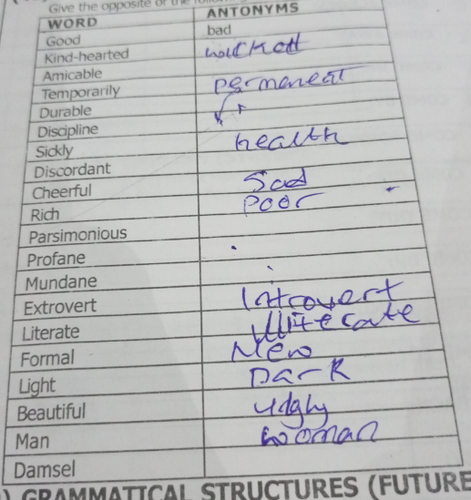 Give the opposite of the
WORD ANTONYMS
Good bad
Kind-hearted wicked
Amicable
Temporarily permanent
Durable
Discipline
Sickly health
Discordant
Cheerful Sad
Rich Poor
Parsimonious
Profane
Mundane
Extrovert Introvert
Literate illiterate
Formal New
Light Dark
Beautiful Udghy
Man woman
Damsel
GRAMMATICAL STRUCTURES (FUTURE